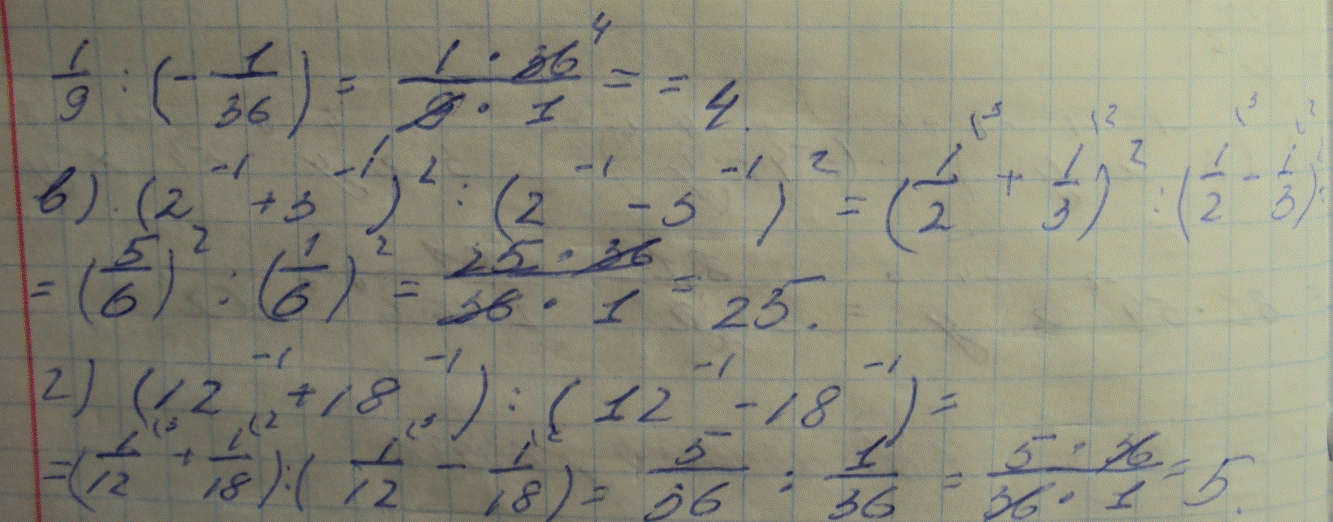 1/9 : (- 1/36) = 1 · 36⁴ / 9 · 1 = = 4.
в). (2⁻¹ + 3⁻¹)² : (2⁻¹ - 3⁻¹)² = (1/2\³ + 1/3\²)² : (1/2\³ - 1/3\²)² =
= (5/6)² : (1/6)² = 25 · 36 / 36 · 1 = 25.
г) (12⁻¹ + 18⁻¹) : (12⁻¹ - 18⁻¹) =
= (1/12\³ + 1/18\²) : (1/12\³ - 1/18\²) = 5/36 : 1/36 = 5 · 36 / 36 · 1 = 5.